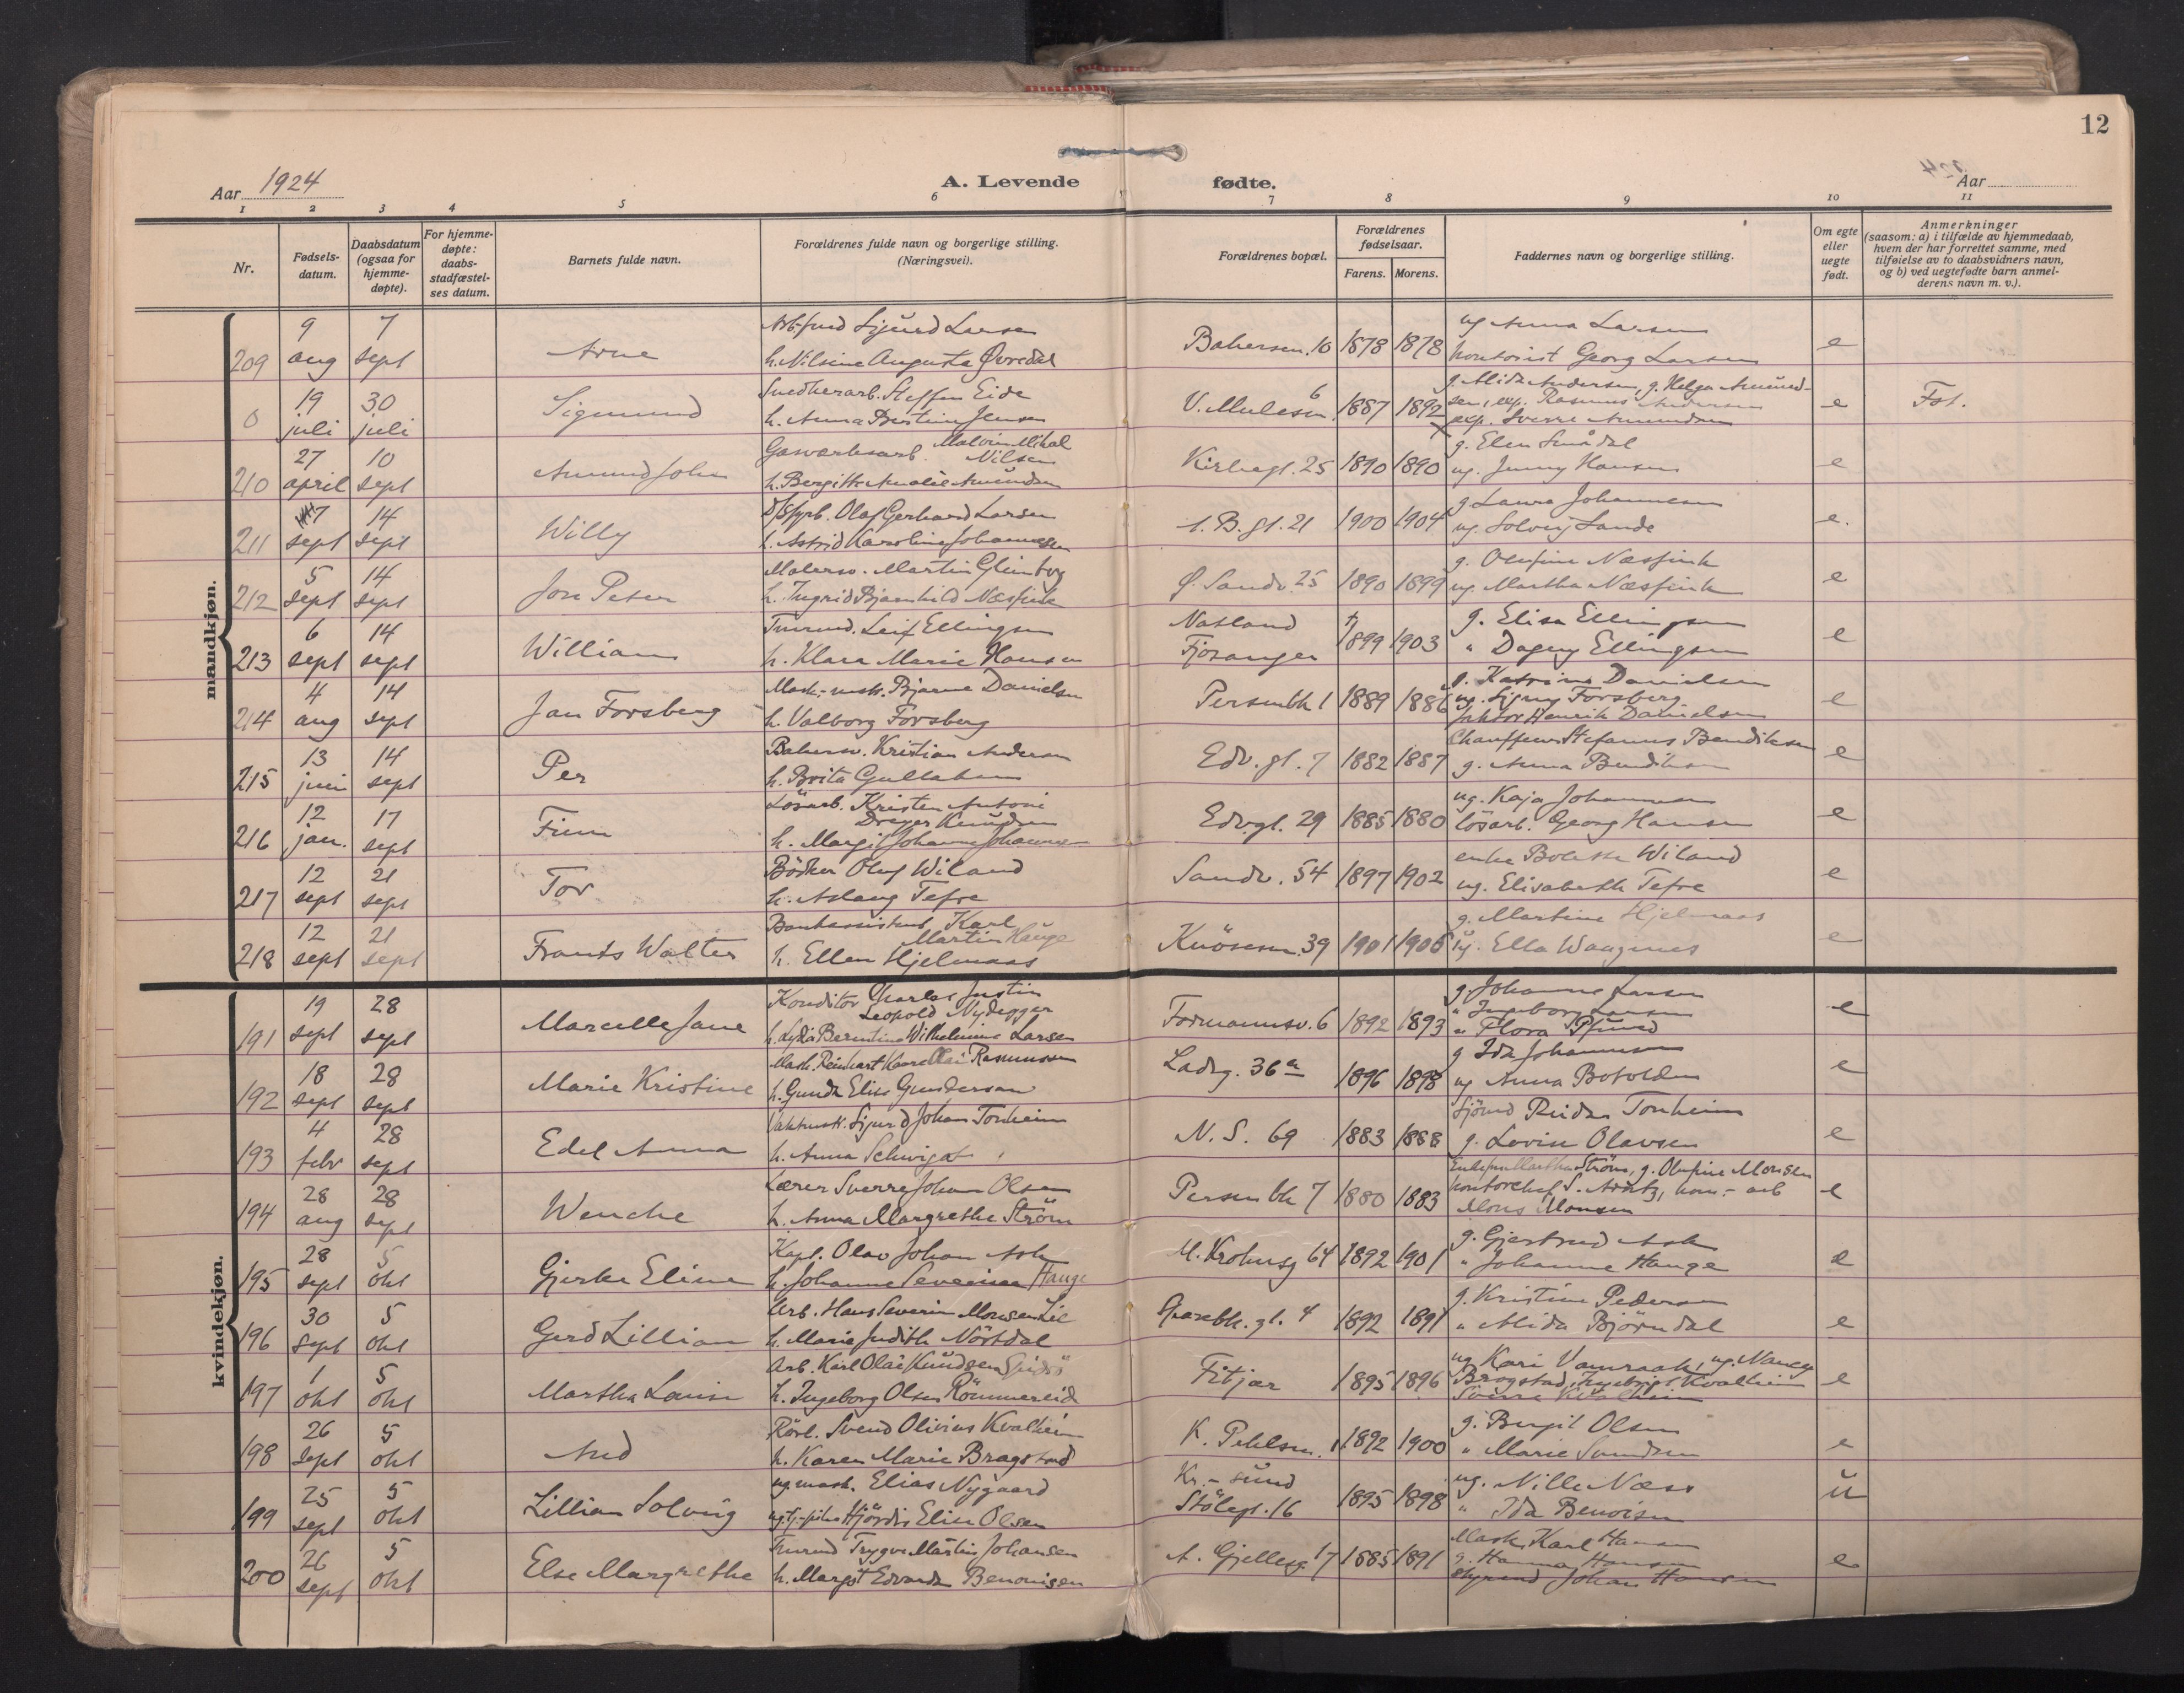 12
Aar 1924
A. Levende fødte.
Aar
1 2 3 4 5 6 7 8 9 10 11
Nr.
Fødsels-
datum.
Daabsdatum
(ogsaa for
hjemme-
døpte).
For hjemme-
døpte:
daabs-
stadfæstel-
ses datum.
Barnets fulde navn.
Forældrenes fulde navn og borgerlige stilling.
(Næringsvei).
Forældrenes bopæl.
Forældrenes
fødselsaar.
Farens. Morens.
Faddernes navn og borgerlige stilling.
Om egte
eller
uegte
født.
Anmerkninger
(saasom: a) i tilfælde av hjemmedaab,
hvem der har forrettet samme, med
tilføielse av to daabsvidners navn,
og b) ved uegtefødte barn anmel-
derens navn m. v.).
mandkjøn.
209 9 aug 7 sept Arne
Sigurd Larsen
h. Nilsine Augusta Øvredal
1878 1878
ug Anna Larsen
kontorist Georg Larsen
e
0 19 juli 30 juli Sigmund
Snedkerarb. Steffen Eide
h. Anna Jensen
V. Mulesm. 6 1887 1892
g. Alida Andersen, g. Helga Amund-
sen, exp. Rasmus Andersen
exp. Sverre Amundsen
e Fst.
210 27 april 10 sept Amund John
Gasverksarb. Malvin Mikal
Nilsen
h. Bergitte Amalie Amundsen
Kirkegt. 25 1890 1890
g. Elen Smådal
ug. Jenny Hansen
e
211 7 sept 14 sept Willy
Olaf Gerhard Larsen
h. Astrid Karoline Johannesen
1. B. gt. 21 1900 1904
g Laura Johannesen
ug. Solveig Sande
e.
212 5 sept 14 sept Jon Peter
Malersv. Martin
h. Ingrid
Ø. Sandv. 25 1890 1899
g. Olufine
ug. Martha
e
213 6 sept 14 sept William
Leif Ellingsen
h. Klara Marie Hansen
Natland
Fjøsanger
1899 1903
g. Elisa Ellingsen
" Dagny Ellingsen
e
214 4 aug 14 sept Jan Forsberg
Bjarne Danielsen
h. Valborg Forsberg
Persenbk 1 1889 1886
g. Katrine Danielsen
ug. Signy Forsberg
Henrik Danielsen
e
215 13 juni 14 sept Per
Bakersv. Kristian Andersen
h. Brita
Edv. gt. 7 1882 1887
Chauffeur Stefanus Bendiksen
g. Anna Bendiksen
e
216 12 jan. 17 sept Finn
Løsarb. Kristen Antoni
Dreyer Knudsen
h. Margit Johanne Johannesen
Edv.gt. 29 1885 1880
ug. Kaja Johannesen
løsarb. Georg Hansen
e
217 12 sept 21 sept Tor
Bødker Oluf Wiland
h. Aslaug Tefre
Sandv. 54 1897 1902
enke Bolette Wiland
ug. Elisabeth Tefre
e
218 12 sept 21 sept Frants Walter
Bankassistent Karl
Martin Hauge
h. Ellen Hjelmaas
Knøsesm. 39 1901
g. Martine Hjelmaas
ug. Ella Wangnes
e
kvindekjøn.
191 19 sept 28 sept Marcelle Jane
Konditor Charles Justin
Leopold Nydegger
h. Lydia Berentine Wilhelmine Larsen
Formannsv. 6 1892 1893
g. Johanne Larsen
" Ingeborg Larsen
" Flora
e
192 18 sept 28 sept Marie Kristine
Rasmussen
h. Gunda Elise Gundersen
Ladeg. 36 a 1896 1898
g Ida Johannesen
ug Anna
e
193 4 febr 28 sept Edel Anna
Sigurd Johan Tonheim
h. Anna
N. S. 69 1883 1888
Sjømd Reidar Tonheim
g. Lovise Olavsen
e
194 28 aug 28 sept Wenche
Lærer Sverre Johan Olsen
h. Anna Margrethe Strøm
Persenbk 7 1880 1883
Enkefru Martha Strøm, g. Olufine Monsen
kontorchef S.
Mons Monsen
e
195 28 sept 5 okt Eline
Kapt. Olav Johan Ask
h. Johanne Severine Hauge
M. Krohnsg 64 1892 1901
g. Gjertrud Ask
" Johanne Hauge
e
196 30 sept 5 okt Gerd Lillian
Arb. Hans Severin Monsen Lie
h. Marie Judith Nørtdal
4 1892 1891
g. Kristine Pedersen
" Alida Bjørndal
e
197 1 okt 5 okt Martha Lovise
Arb. Karl Olai Knudsen
h. Ingeborg Olsen Rømmereid
Fitjar 1895 1896
ug Kari Vamraak, ug. Nancy
Brogstad, Ingebrigt Kvalheim
Sverre Kvalheim
e
198 26 sept 5 okt Aud
Rørl. Svend Olivius Kvalheim
h. Karen Marie Brogstad
1892 1900
g. Bergit Olsen
" Marie
e
199 25 sept 5 okt Lillian Solveig
ug mask. Elias Nygaard
Hjördis Elise Olsen
Kr.-sund
Stølegt. 16
1895 1898
ug. Nille Næss
" Ida
u
200 26 sept 5 okt Else Margrethe
Trygve Martin Johansen
h. Margit Benonisen
A. Gjellesg. 17 1885 1891
Mask. Karl Hansen
g. Hanna Hansen
Styrmd Johan Hansen
e